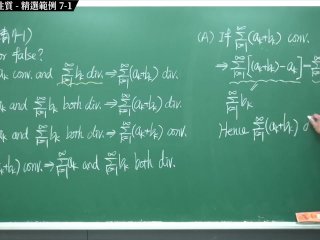 性質 - 精選範例 7-1
7-1)
or false?
aₖ conv. and ∑_{k=1}^{∞} bₖ div. ⇒ ∑_{k=1}^{∞} (aₖ+bₖ) div.
∑_{k=1}^{∞} bₖ both div. ⇒ ∑_{k=1}^{∞} (aₖ+bₖ) div.
∑_{k=1}^{∞} bₖ both div. ⇒ ∑_{k=1}^{∞} (aₖ+bₖ) conv.
+bₖ) conv. ⇒ ∑_{k=1}^{∞} aₖ and ∑_{k=1}^{∞} bₖ both div.
(A) If ∑_{k=1}^{∞} (aₖ+bₖ) conv.
⇒ ∑_{k=1}^{∞} [(aₖ+bₖ) - aₖ] =
∑_{k=1}^{∞} bₖ
Hence ∑_{k=1}^{∞} (aₖ+bₖ) d